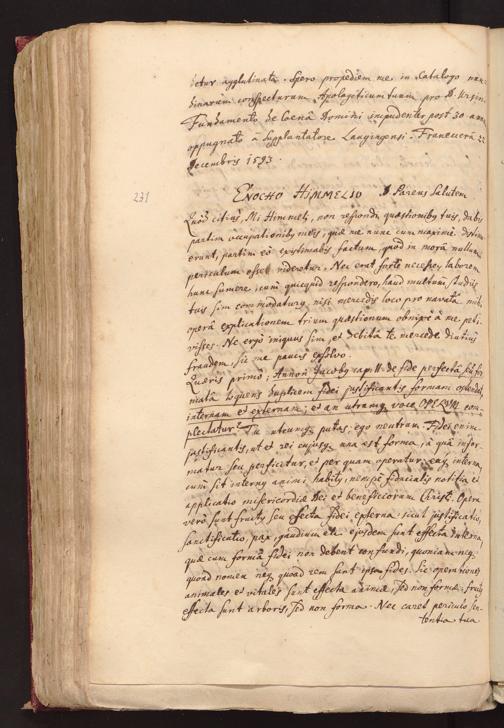 detur agglutinata. Spero propediem me in Catalogo nun-
dinarum conspecturum Apologeticum tuum pro D. Ursini
Fundamento de Caena Domini impudenter post 30 annos
oppugnato a Supplantatore Laugingensi. Francverâ 22
Decembris 1593.
231
ENOCHO HIMMELIO D. Pareus Salutem
Quod citius, Mi Himmeli, non respondi quaestionibus tuis, dabis
partim occupationibus meis, quae me nunc cum maxime distin-
erunt, partim eo existimabis factum, quod in morâ nullum
periculum esse videretur. Nec erat forte necesse laborem
hunc sumere, cum quicquid respondero, haud multum studiis
tuis sim commodaturus, nisi mercedis loco pro navatâ mihi
operâ explicationem trium quaestionum obnixè à me peti-
visses. Ne ergo iniquus sim, et debitâ te mercede diutius
fraudem, sic me paucis exsolvo.
Quaeris primo; Annon Jacobus cap. II. de fide perfectâ, seu for-
matâ loquens duplicem fidei justificantis formam ostendat,
internam et externam; et an utramque voce OPERUM com-
plectatur? Tu utrumque putas, ego neutrum. Fidei enim
justificantis, ut et rei cujusque una est forma, à quâ infor-
matur seu perficitur, et per quam operatur, eaque interna,
cum sit interni animi habitus, nempe fiducialis notitia et
applicatio misericordiae Dei et beneficiorum Christi. Opera
vero sunt fructus seu effecta fidei externa: sicut justificatio,
sanctificatio, pax, gaudium etc. ejusdem sunt effecta interna,
quae cum formâ fidei non debent confundi, quoniam neque
quoad nomen neque quoad rem sunt ipsa fides. Sic operationes
animales et vitales sunt effecta animae, sed non forma: fructus
effecta sunt arboris, sed non forma. Nec caret periculo sen-
tentia tua